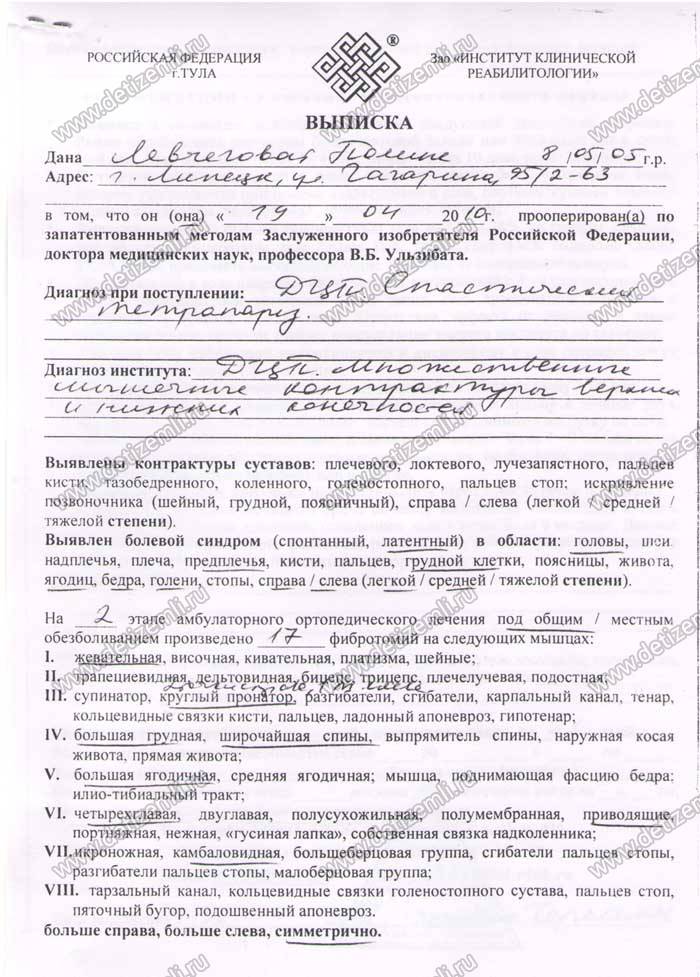 РОССИЙСКАЯ ФЕДЕРАЦИЯ
г.ТУЛА
®
Зао «ИНСТИТУТ КЛИНИЧЕСКОЙ
РЕАБИЛИТОЛОГИИ»
ВЫПИСКА
Дана Левчеговая Полине 8/05/05 г.р.
Адрес: г. Липецк, ул. Гагарина, 95/2-63
в том, что он (она) « 19 » 04 2010г. прооперирован(а) по
запатентованным методам Заслуженного изобретателя Российской Федерации,
доктора медицинских наук, профессора В.Б. Ульзибата.
Диагноз при поступлении: ДЦП Спастический
тетрапарез.
Диагноз института: ДЦП. Множественные
мышечные контрактуры верхних
и нижних конечностей
Выявлены контрактуры суставов: плечевого, локтевого, лучезапястного, пальцев
кисти, тазобедренного, коленного, голеностопного, пальцев стоп; искривление
позвоночника (шейный, грудной, поясничный), справа / слева (легкой / средней /
тяжелой степени).
Выявлен болевой синдром (спонтанный, латентный) в области: головы, шеи,
надплечья, плеча, предплечья, кисти, пальцев, грудной клетки, поясницы, живота,
ягодиц, бедра, голени, стопы, справа / слева (легкой / средней / тяжелой степени).
На 2 этапе амбулаторного ортопедического лечения под общим / местным
обезболиванием произведено 17 фибротомий на следующих мышцах:
I. жевательная, височная, кивательная, платизма, шейные;
II. трапециевидная, дельтовидная, бицепс, трицепс, плечелучевая, подостная;
III. супинатор, круглый пронатор, разгибатели, сгибатели, карпальный канал, тенар,
кольцевидные связки кисти, пальцев, ладонный апоневроз, гипотенар;
IV. большая грудная, широчайшая спины, выпрямитель спины, наружная косая
живота, прямая живота;
V. большая ягодичная, средняя ягодичная; мышца, поднимающая фасцию бедра;
илио-тибиальный тракт;
VI. четырехглавая, двуглавая, полусухожильная, полумембранная, приводящие,
портняжная, нежная, «гусиная лапка», собственная связка надколенника;
VII. икроножная, камбаловидная, большеберцовая группа, сгибатели пальцев стопы,
разгибатели пальцев стопы, малоберцовая группа;
VIII. тарзальный канал, кольцевидные связки голеностопного сустава, пальцев стоп,
пяточный бугор, подошвенный апоневроз.
больше справа, больше слева, симметрично.
www.detizemli.ru